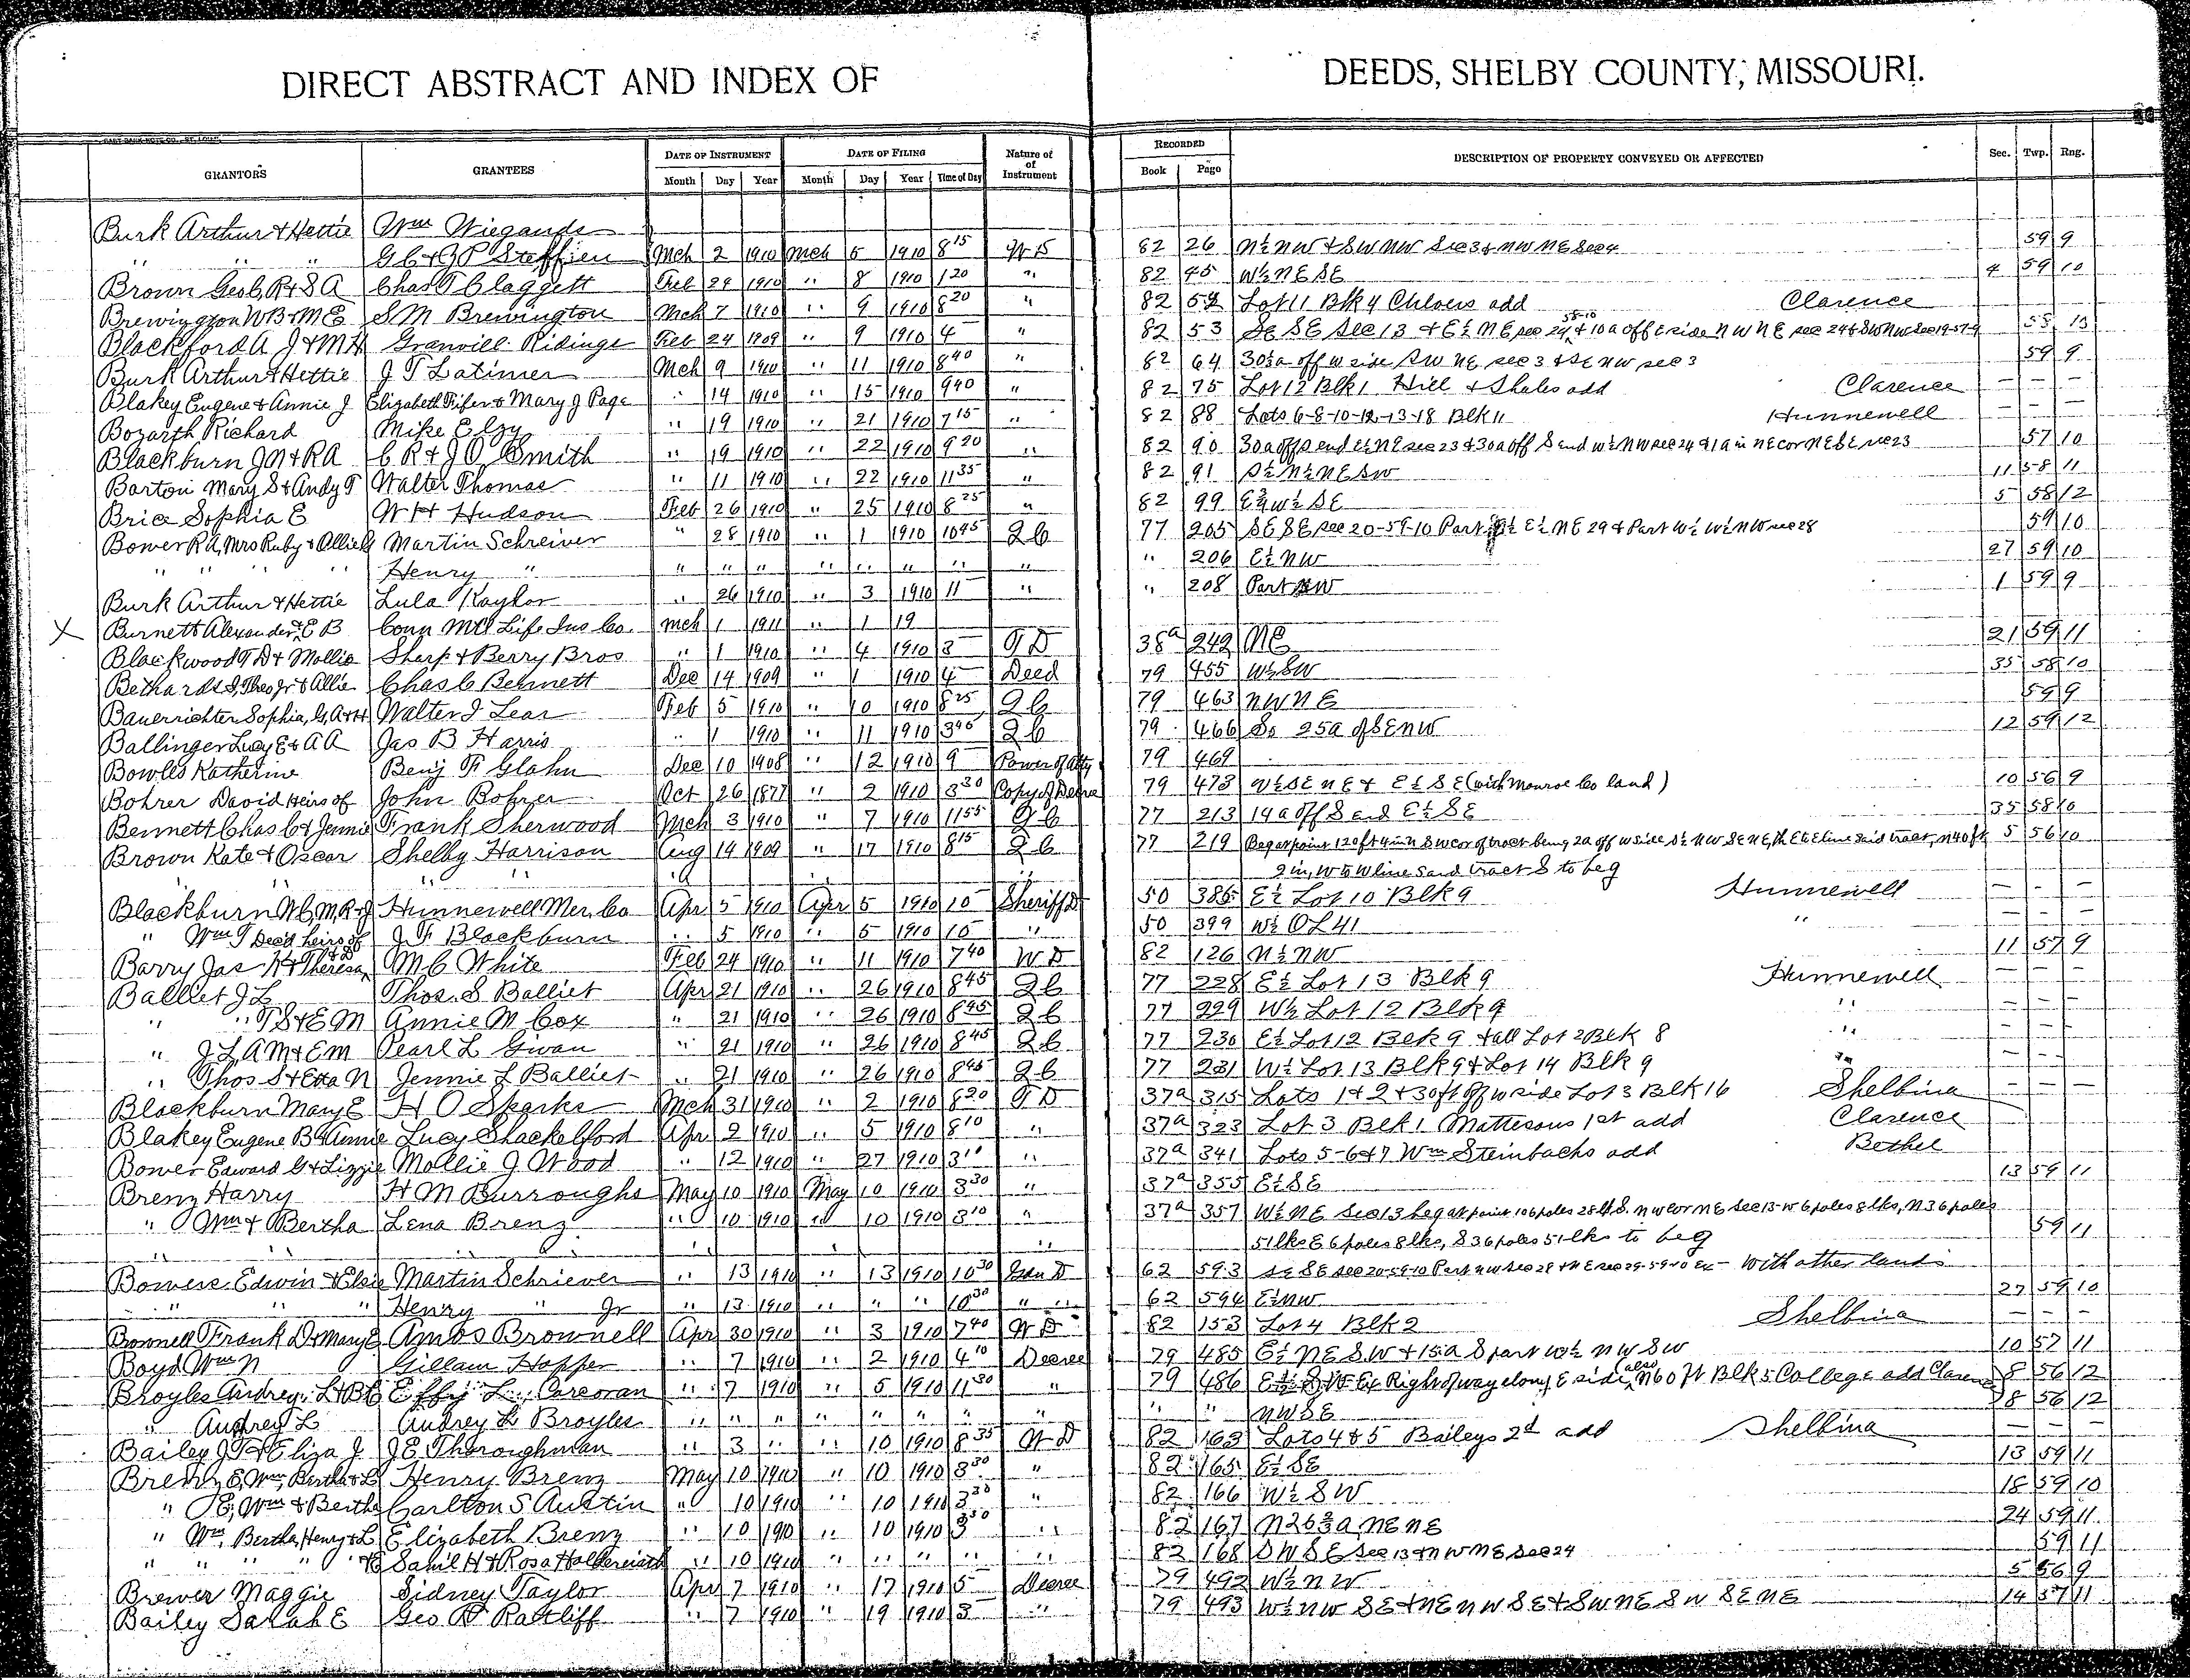 DIRECT ABSTRACT AND INDEX OF DEEDS, SHELBY COUNTY, MISSOURI.
GRANTORS GRANTEES DATE OF INSTRUMENT DATE OF FILING Nature of Instrument RECORDED DESCRIPTION OF PROPERTY CONVEYED OR AFFECTED Sec. Twp. Rng.
Month Day Year Month Day Year Time of Day Book Page
Burk Arthur & Hettie Wm Wiegands
" " " G C & J P Steffien Mch 2 1910 Mch 5 1910 8 15 W D 82 26 N½ NW & SW NW Sec 3 & NW NE Sec 4 59 9
Brown Geo C, R & S A Chas T Claggett Feb 29 1910 " 8 1910 1 20 " 82 45 W½ NE SE 4 59 10
Brewington W B & M E S M Brewington Mch 7 1910 " 9 1910 8 20 " 82 52 Lot 11 Blk 4 Chloers add Clarence
Blackford A J & M H Granvill Ridings Feb 24 1909 " 9 1910 4 " 82 53 SE SE Sec 13 & E½ NE sec 24 & 10 a off E side NW NE sec 24 & SW NW Sec 19-57-9
Burk Arthur & Hettie J T Latimer Mch 9 1910 " 11 1910 8 40 " 82 64 30½ a off W side SW NE sec 3 & SE NW sec 3 59 9
Blakey Eugene & Annie J Elizabeth Fifer & Mary J Page " 14 1910 " 15 1910 9 40 " 82 75 Lot 12 Blk 1 Hill & Shales add Clarence — — —
Bozarth Richard Mike Elzy " 19 1910 " 21 1910 7 15 " 82 88 Lots 6-8-10-12-13-18 Blk 11 Hunnewell — — —
Blackburn J N & R A C R & J O Smith " 19 1910 " 22 1910 9 20 " 82 90 30 a off S end E½ NE sec 23 & 30 a off S end W½ NW sec 24 & 1 a in NE cor NE SE sec 23 57 10
Barton Mary S & Andy T Walter Thomas " 11 1910 " 22 1910 11 35 " 82 91 S½ N½ NE SW 11 58 11
Brice Sophia E W H Hudson Feb 26 1910 " 25 1910 8 25 " 82 99 E¾ W½ SE 5 58 12
Bower R A, Mrs Ruby & Allie Martin Schreiver " 28 1910 " 1 1910 10 45 Q C 77 205 SE SE sec 20-59-10 Part E½ E½ NE 29 & Part W½ W½ NW sec 28 59 10
" " " " Henry " " " " " " " " " " 206 E½ NW 27 59 10
Burk Arthur & Hettie Lula Kaylor " 26 1910 " 3 1910 11 " " 208 Part NW 1 59 9
X Burnett Alexander, E B Conn Mtl Life Ins Co. Mch 1 1911 " 1 19
Blackwood T D & Mollie Sharp & Berry Bros " 1 1910 " 4 1910 3 T D 38a 242 NE 21 59 11
Bethards J, Theo Jr & Allie Chas C Bennett Dec 14 1909 " 1 1910 4 Deed 79 455 W½ SW 35 58 10
Bauerrichter Sophia, G, A & H Walter J Lear Feb 5 1910 " 10 1910 8 25 Q C 79 463 NW NE 59 9
Ballinger Lucy E & A A Jas B Harris " 1 1910 " 11 1910 3 45 Q C 79 466 So 25 a of SE NW 12 59 12
Bowles Katherine Benj F Glahn Dec 10 1908 " 12 1910 9 Power of Atty 79 469
Bohrer David Heirs of John Bohrer Oct 26 1877 " 2 1910 3 30 Copy of Decree 79 473 W½ SE NE & E½ SE (with Monroe Co land) 10 56 9
Bennett Chas C & Jennie Frank Sherwood Mch 3 1910 " 7 1910 11 55 Q C 77 213 14 a off S end E½ SE 35 58 10
Brown Kate & Oscar Shelby Harrison Aug 14 1909 " 17 1910 8 15 Q C 77 219 Beg at point 120 ft 4 in N SW cor of tract being 2 a off W side S½ NW SE NE, th E to E line said tract, N 40 ft 5 56 10
" " " " " 9 in, W to W line said tract S to beg
Blackburn N C, M, R & J Hunnewell Mer. Co Apr 5 1910 Apr 5 1910 10 Sheriff D 50 386 E½ Lot 10 Blk 9 Hunnewell — — —
" Wm T Dec'd heirs of J F Blackburn " 5 1910 " 5 1910 10 " 50 399 W½ OL 41 " — — —
Barry Jas K & Theresa M C White Feb 24 1910 " 11 1910 7 40 W D 82 126 N½ NW 11 57 9
Balliet J L Thos. S Balliet Apr 21 1910 " 26 1910 8 45 Q C 77 228 E½ Lot 13 Blk 9 Hunnewell — — —
" T S & E M Annie M Cox " 21 1910 " 26 1910 8 45 Q C 77 229 W½ Lot 12 Blk 9 " — — —
" J L A M & E M Pearl L Gwan " 21 1910 " 26 1910 8 45 Q C 77 230 E½ Lot 12 Blk 9 & all Lot 2 Blk 8 " — — —
" Thos S & Etta N Jennie L Balliet " 21 1910 " 26 1910 8 45 Q C 77 231 W½ Lot 13 Blk 9 & Lot 14 Blk 9 " — — —
Blackburn Mary E H O Sparks Mch 31 1910 " 2 1910 8 20 T D 37a 315 Lots 1 & 2 & 30 ft off W side Lot 3 Blk 16 Shelbina — — —
Blakey Eugene B & Annie Lucy Shackelford Apr 2 1910 " 5 1910 8 10 " 37a 323 Lot 3 Blk 1 Mattesons 1st add Clarence
Bower Edward G & Lizzie Mollie J Wood " 12 1910 " 27 1910 3 10 " 37a 341 Lots 5-6 & 7 Wm Steinbachs add Bethel
Brenz Harry H M Burroughs May 10 1910 May 10 1910 3 30 " 37a 355 E½ SE 13 59 11
" Wm & Bertha Lena Brenz " 10 1910 " 10 1910 3 10 " 37a 357 W½ NE Sec 13 beg at point 106 poles 28 lks S. NW cor NE Sec 13-W 6 poles 8 lks, N 36 poles
" " " " " 51 lks E 6 poles 8 lks, S 36 poles 51 lks to beg 59 11
Bowers Edwin & Elsie Martin Schriever " 13 1910 " 13 1910 10 30 62 593 SE SE sec 20-59-10 Part NW Sec 28 & NE sec 29-59-10 Ex - with other lands
" " " Henry " Jr " 13 1910 " " " 10 30 " 62 594 E½ NW 27 59 10
Brownell Frank D & Mary E Amos Brownell Apr 30 1910 " 3 1910 7 40 W D 82 153 Lot 4 Blk 2 Shelbina — — —
Boyd Wm N Gillam Hopper " 7 1910 " 2 1910 4 10 Decree 79 485 E½ NE SW & 15 a S part W½ NW SW 10 57 11
Broyles Audrey L & B C Effy L. Corcoran " 7 1910 " 5 1910 11 30 " 79 486 E½ SW Ex Right of way along E side, also N 60 ft Blk 5 College add Clarence 8 56 12
" Audrey L Audrey L Broyles " " " " " " " " " " NW SE 8 56 12
Bailey J T & Eliza J J E Thoroughman " 3 " " 10 1910 8 35 W D 82 163 Lots 4 & 5 Baileys 2d add Shelbina — — —
Brenz E, Wm, Bertha & L Henry Brenz May 10 1910 " 10 1910 3 30 " 82 165 E½ SE 13 59 11
" E, Wm & Bertha Carlton S Austin " 10 1910 " 10 1910 3 30 " 82 166 W½ SW 18 59 10
" Wm, Bertha, Henry & L Elizabeth Brenz " 10 1910 " 10 1910 3 30 " 82 167 N 26⅔ a NE NE 24 59 11
" " " " & E Sam'l H & Rosa " 10 1910 " " " " " 82 168 SW SE Sec 13 & NW NE Sec 24 59 11
Brewer Maggie Sidney Taylor Apr 7 1910 " 17 1910 5 Decree 79 492 W½ NW 5 56 9
Bailey Sarah E Geo R Ratliff " 7 1910 " 19 1910 3 " 79 493 W½ NW SE & NE NW SE & SW NE SW SE NE 14 57 11